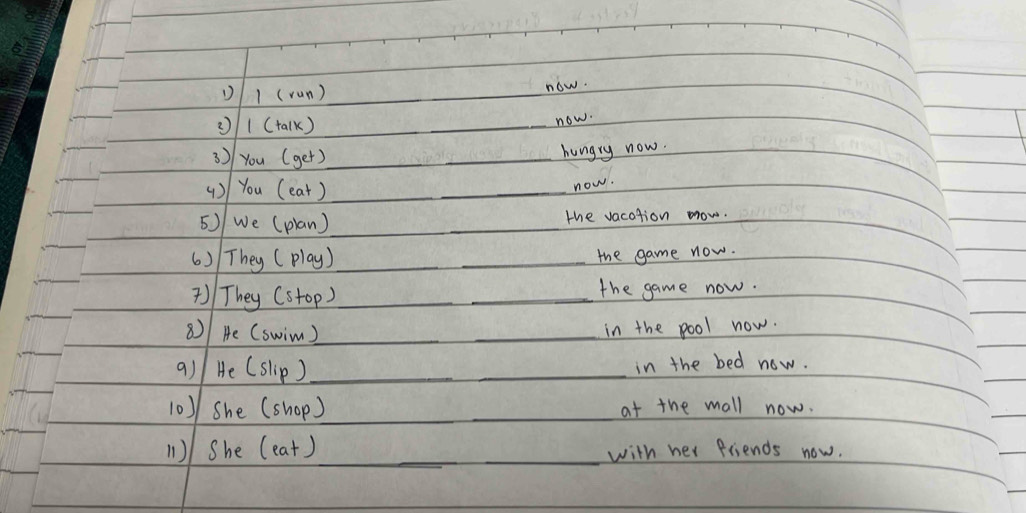 1) I (run) ________ ________ now.
2) I (talk) ________ ________ now.
3) You (get) ________ ________ hungry now.
4) You (eat) ________ ________ now.
5) We (plan) ________ ________ the vacation now.
6) They (play) ________ ________ the game now.
7) They (stop) ________ ________ the game now.
8) He (swim) ________ ________ in the pool now.
9) He (slip) ________ ________ in the bed now.
10) She (shop) ________ ________ at the mall now.
11) She (eat) ________ ________ with her friends now.